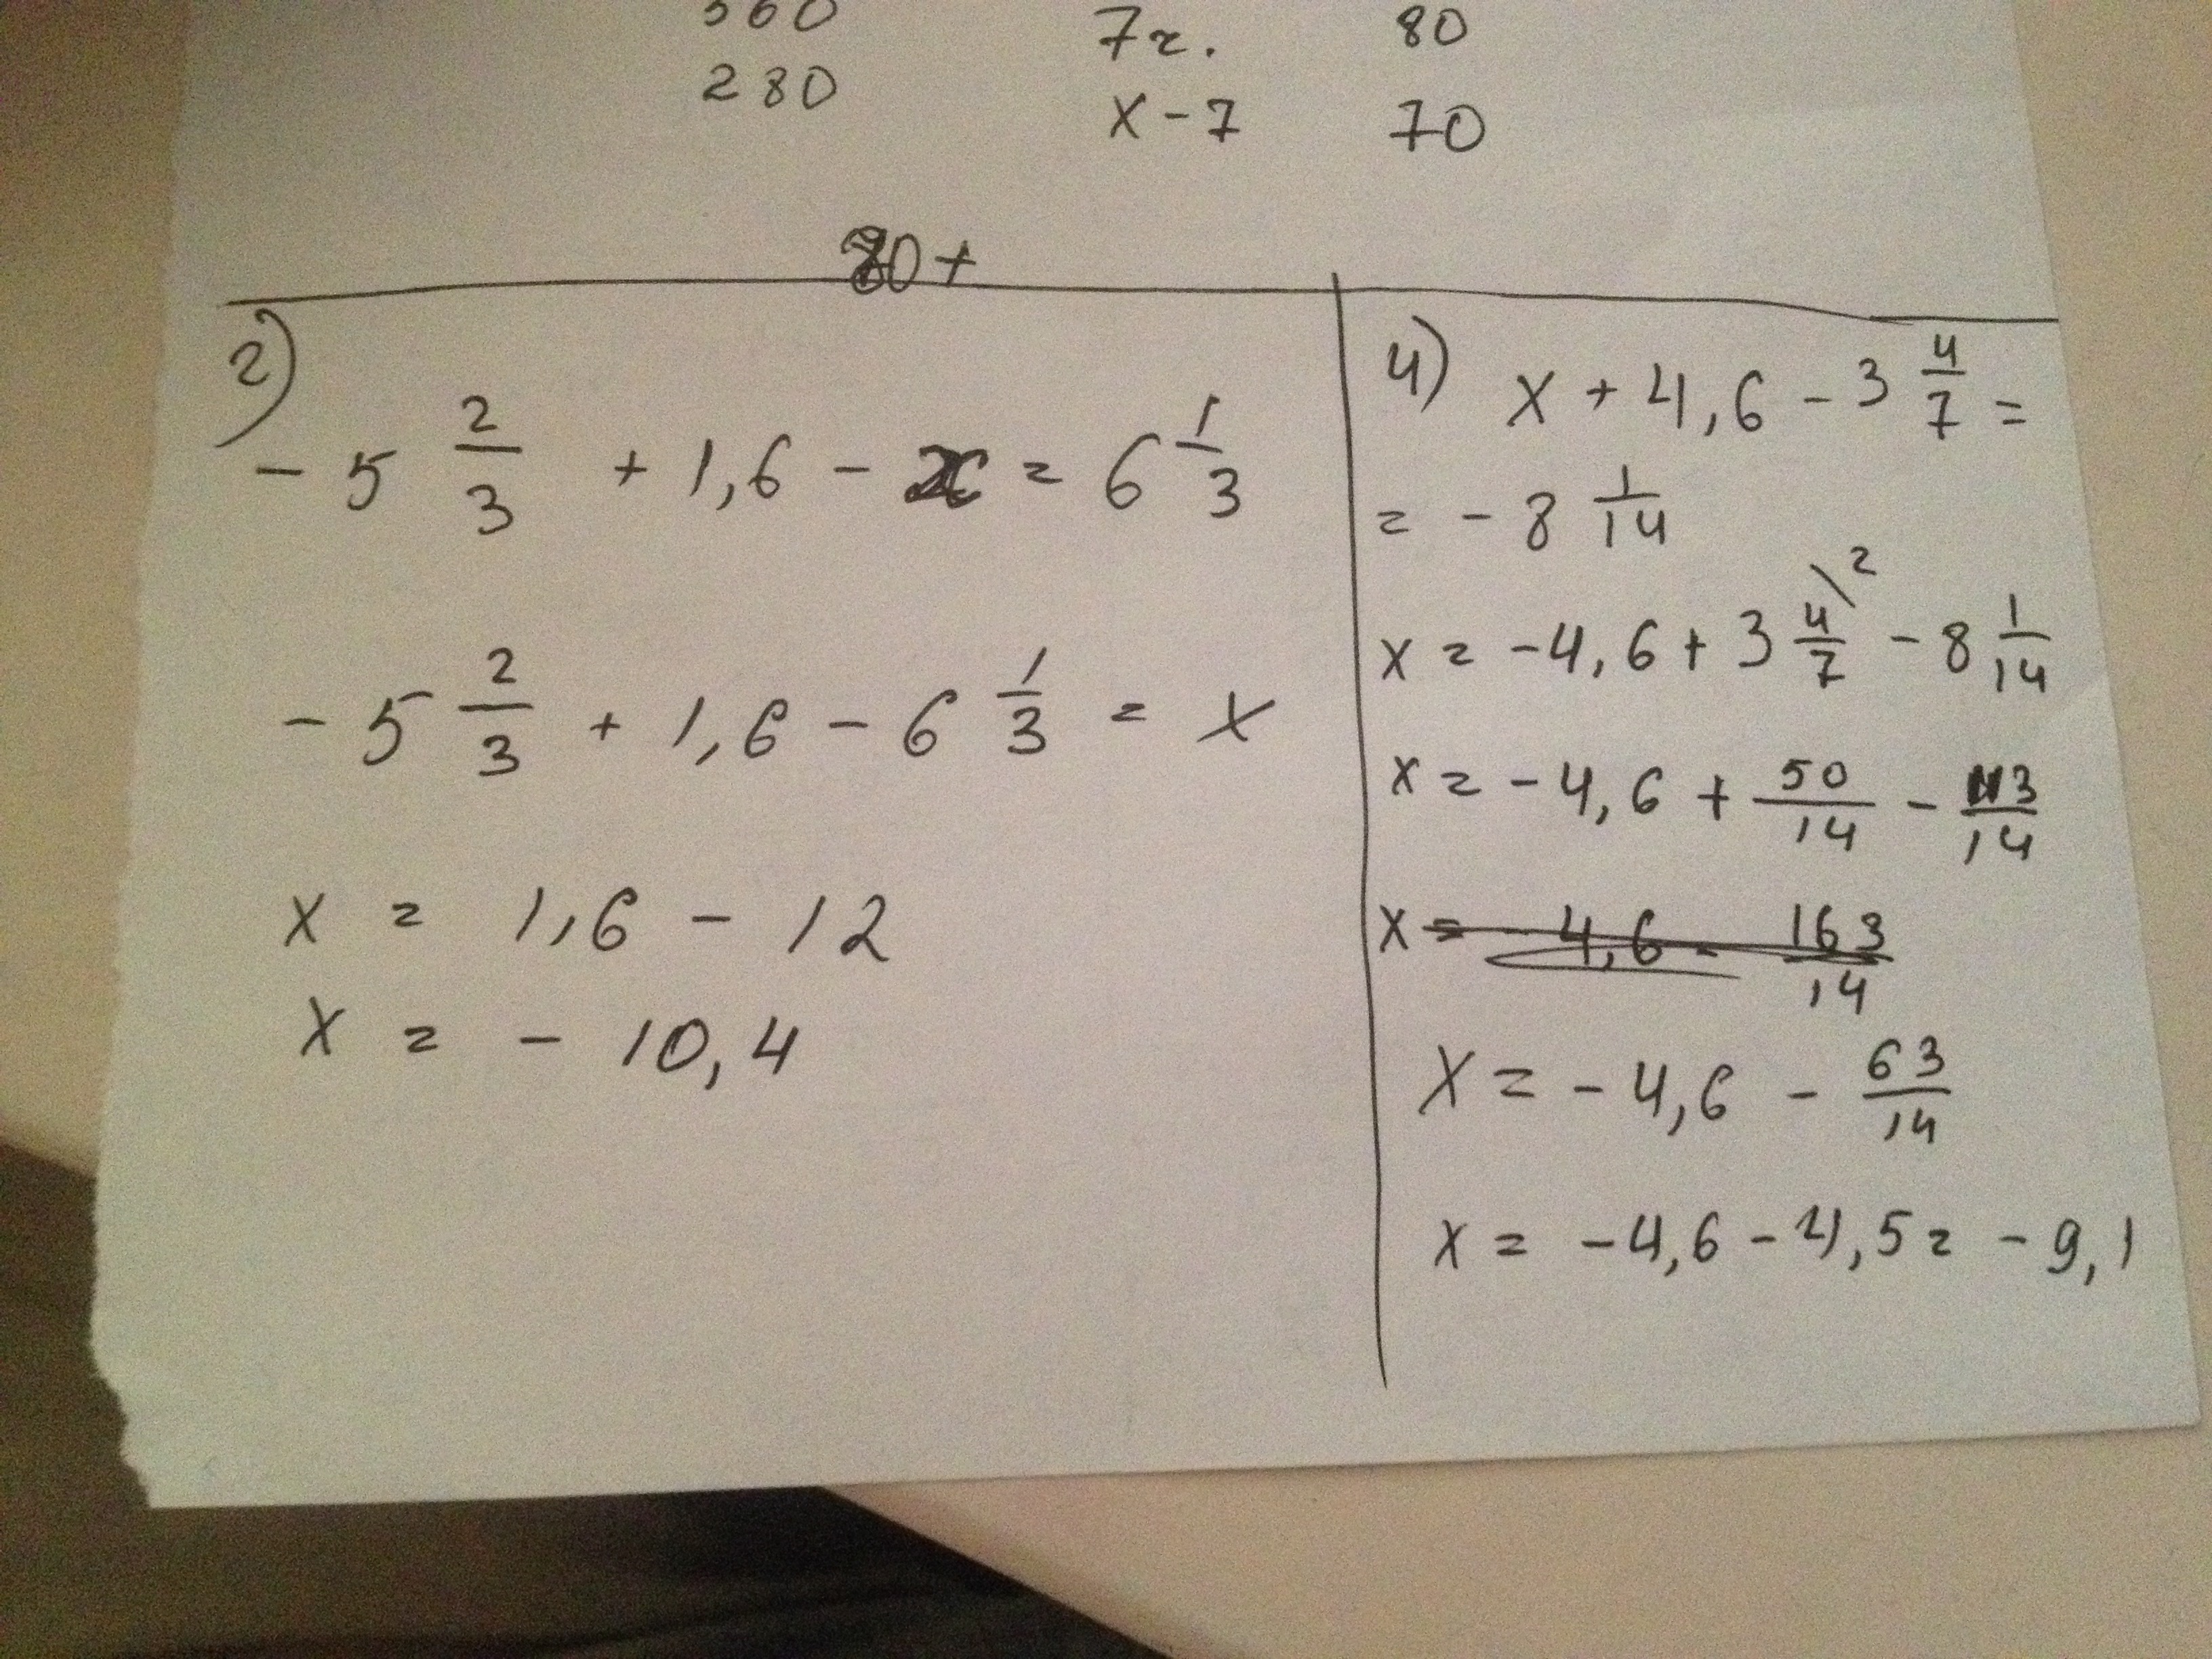 560 7г. 80
280 x - 7 70
80 +
2)
- 5 2/3 + 1,6 - x = 6 1/3
- 5 2/3 + 1,6 - 6 1/3 = x
x = 1,6 - 12
x = - 10,4
4) x + 4,6 - 3 4/7 =
= - 8 1/14
x = -4,6 + 3 4/7 \2 - 8 1/14
x = -4,6 + 50/14 - 113/14
x = - 4,6 - 163/14
x = - 4,6 - 63/14
x = -4,6 - 4,5 = - 9,1